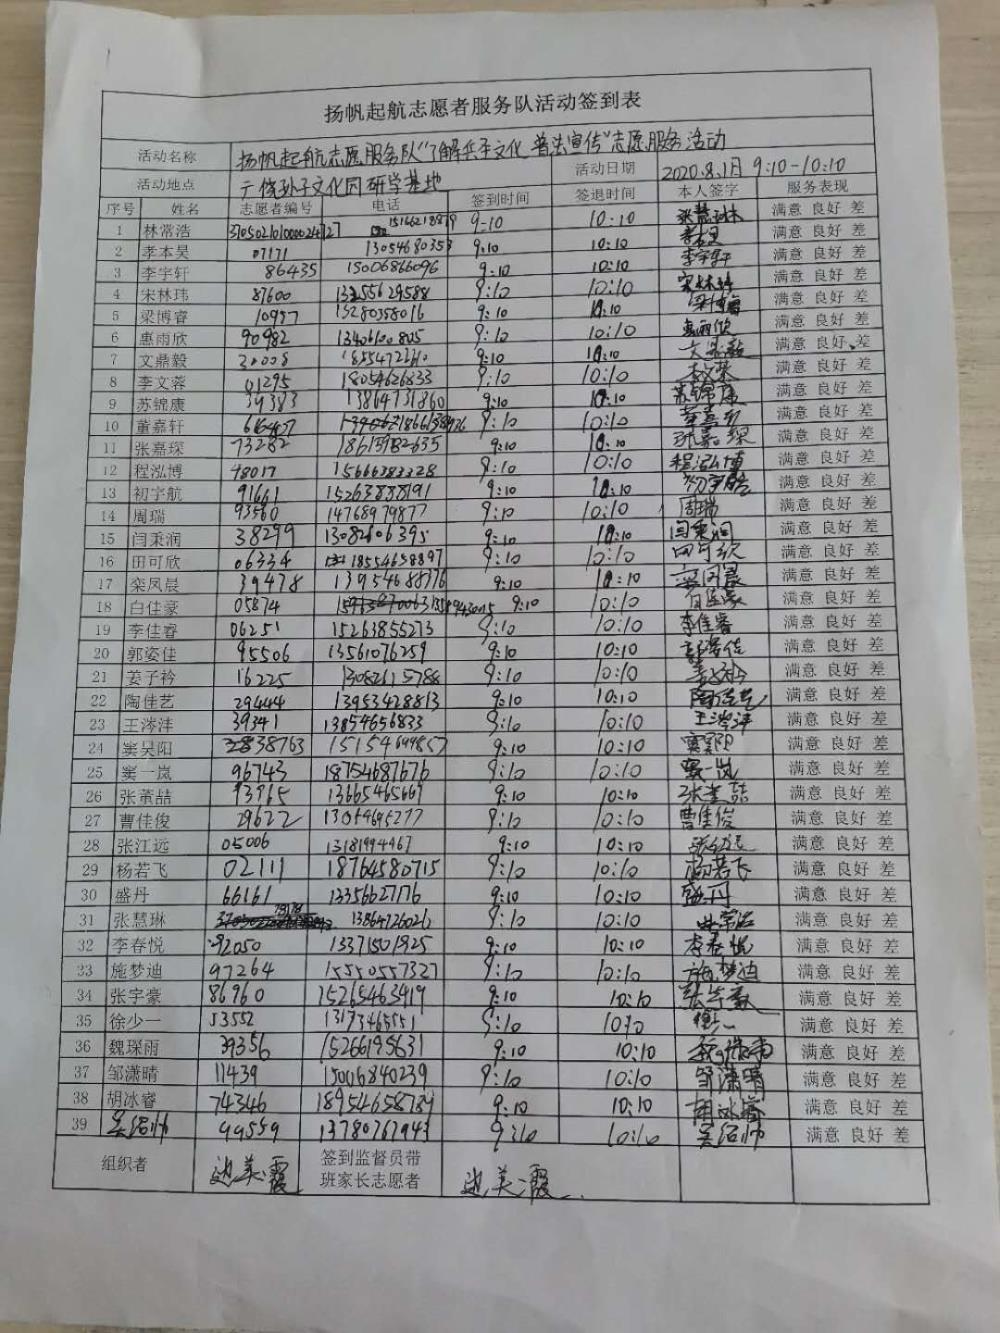 扬帆起航志愿者服务队活动签到表
活动名称 扬帆起航志愿服务队"了解兵子文化 普法宣传"志愿服务活动
活动地点 广饶孙子文化园研学基地 活动日期 2020.8.1月 9:10-10:10
序号 姓名 志愿者编号 电话 签到时间 签退时间 本人签字 服务表现
1 林常浩 9:10 10:10 满意 良好 差
2 李本昊 07171 13054680353 9:10 10:10 满意 良好 差
3 李宇轩 86435 15006866096 9:10 10:10 李宇轩 满意 良好 差
4 宋林玮 87600 9:10 10:10 宋林玮 满意 良好 差
5 梁博睿 10987 13280358016 9:10 10:10 梁博睿 满意 良好 差
6 惠雨欣 90982 13406100805 9:10 10:10 惠雨欣 满意 良好 差
7 文鼎毅 9:10 10:10 文鼎毅 满意 良好 差
8 李文蓉 01295 18054626833 9:10 10:10 满意 良好 差
9 苏锦康 39383 13864731860 9:10 10:10 苏锦康 满意 良好 差
10 董嘉轩 9:10 10:10 满意 良好 差
11 张嘉琛 73282 18615982635 9:10 10:10 张嘉琛 满意 良好 差
12 程泓博 98017 15666383328 9:10 10:10 程泓博 满意 良好 差
13 初宇航 91661 15263888191 9:10 10:10 满意 良好 差
14 周瑞 93560 14768979877 9:10 10:10 周瑞 满意 良好 差
15 闫秉润 38299 13082606395 9:10 10:10 闫秉润 满意 良好 差
16 田可欣 06334 18554658897 9:10 10:10 田可欣 满意 良好 差
17 栾凤晨 39478 13954688776 9:10 10:10 满意 良好 差
18 白佳豪 05874 9:10 10:10 满意 良好 差
19 李佳睿 06251 15263855273 9:10 10:10 李佳睿 满意 良好 差
20 郭姿佳 95506 13561076259 9:10 10:10 满意 良好 差
21 姜子衿 16225 13082615788 9:10 10:10 满意 良好 差
22 陶佳艺 29444 13953428813 9:10 10:10 陶佳艺 满意 良好 差
23 王涔沣 39341 13854656833 9:10 10:10 王涔沣 满意 良好 差
24 窦昊阳 9:10 10:10 满意 良好 差
25 窦一岚 96743 18754687676 9:10 10:10 窦一岚 满意 良好 差
26 张堇喆 93965 13665465669 9:10 10:10 满意 良好 差
27 曹佳俊 29622 9:10 10:10 曹佳俊 满意 良好 差
28 张江远 05006 13181994467 9:10 10:10 满意 良好 差
29 杨若飞 02111 18764580715 9:10 10:10 杨若飞 满意 良好 差
30 盛丹 66161 13356627176 9:10 10:10 盛丹 满意 良好 差
31 张慧琳 13864726026 9:10 10:10 满意 良好 差
32 李春悦 92050 13371501925 9:10 10:10 李春悦 满意 良好 差
33 施梦迪 97264 15550557327 9:10 10:10 施梦迪 满意 良好 差
34 张宇豪 86960 15265463419 9:10 10:10 张宇豪 满意 良好 差
35 徐少一 53552 9:10 10:10 满意 良好 差
36 魏琛雨 39356 15266195631 9:10 10:10 满意 良好 差
37 邹潇晴 11439 15006840239 9:10 10:10 邹潇晴 满意 良好 差
38 胡冰睿 74346 18954658789 9:10 10:10 胡冰睿 满意 良好 差
39 吴绍帅 99559 13780767943 9:10 10:10 吴绍帅 满意 良好 差
组织者 边美霞 签到监督员带班家长志愿者 边美霞